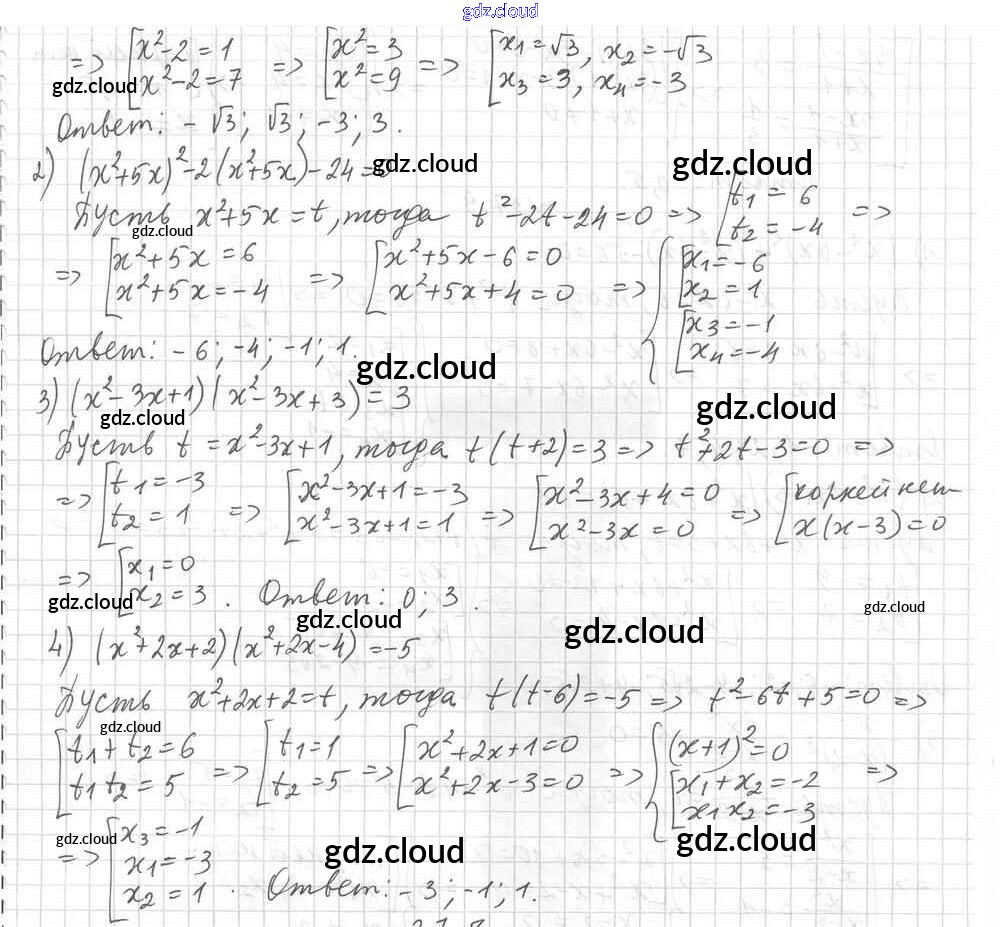 gdz.cloud
=> [x²-2=1 => [x²=3 => [x₁=√3, x₂=-√3
[x²-2=7 [x²=9 [x₃=3, x₄=-3
gdz.cloud
Ответ: -√3; √3; -3; 3.
2) (x²+5x)²-2(x²+5x)-24=0
gdz.cloud gdz.cloud
Пусть x²+5x=t, тогда t²-2t-24=0 => [t₁=6 =>
[t₂=-4
gdz.cloud
=> [x²+5x=6 => [x²+5x-6=0 => {[x₁=-6
[x²+5x=-4 [x²+5x+4=0 [x₂=1
[x₃=-1
[x₄=-4
Ответ: -6; -4; -1; 1.
gdz.cloud
3) (x²-3x+1)(x²-3x+3)=3
gdz.cloud gdz.cloud
Пусть t=x²-3x+1, тогда t(t+2)=3 => t²+2t-3=0 =>
=> [t₁=-3 => [x²-3x+1=-3 => [x²-3x+4=0 => [корней нет
[t₂=1 [x²-3x+1=1 [x²-3x=0 [x(x-3)=0
=> [x₁=0
[x₂=3. Ответ: 0; 3.
gdz.cloud gdz.cloud gdz.cloud gdz.cloud
4) (x²+2x+2)(x²+2x-4)=-5
Пусть x²+2x+2=t, тогда t(t-6)=-5 => t²-6t+5=0 =>
gdz.cloud
[t₁+t₂=6 => [t₁=1 => [x²+2x+1=0 => {(x+1)²=0 =>
[t₁t₂=5 [t₂=5 [x²+2x-3=0 [x₁+x₂=-2
[x₁x₂=-3
gdz.cloud gdz.cloud gdz.cloud
=> [x₃=-1
[x₁=-3
[x₂=1. Ответ: -3; -1; 1.